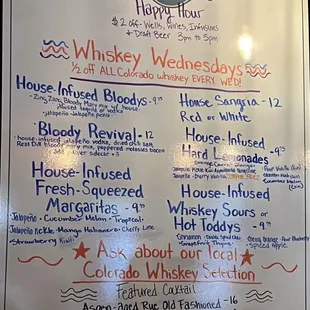 Happy Hour
$2 off - Wells, Wines, Infusions
+ Draft Beer 3pm to 5pm
Whiskey Wednesdays
1/2 off ALL Colorado whiskey EVERY WED!
House-Infused Bloodys - 9
Zing Zang Bloody Mary mix w/ house
infused tequila or vodka
Jalapeño
Bloody Revival - 12
house-infused jalapeño vodka, dried chili salt,
mix, peppered molasses bacon
House-Infused
Fresh-Squeezed
Margaritas - 9
Jalapeño - Cucumber Melon - Tropical -
Jalapeño Pickle - Mango Habanero - Cherry Lime
- Strawberry Kiwi
House Sangria - 12
Red or White
House-Infused
Hard Lemonades
- 9
House-Infused
Whiskey Sours or
Hot Toddys - 9
Cinnamon
- Grapefruit Thyme
- Spiced Apple
Ask about our local
Colorado Whiskey Selection
Featured Cocktail
Aspen-aged Rye Old Fashioned - 16